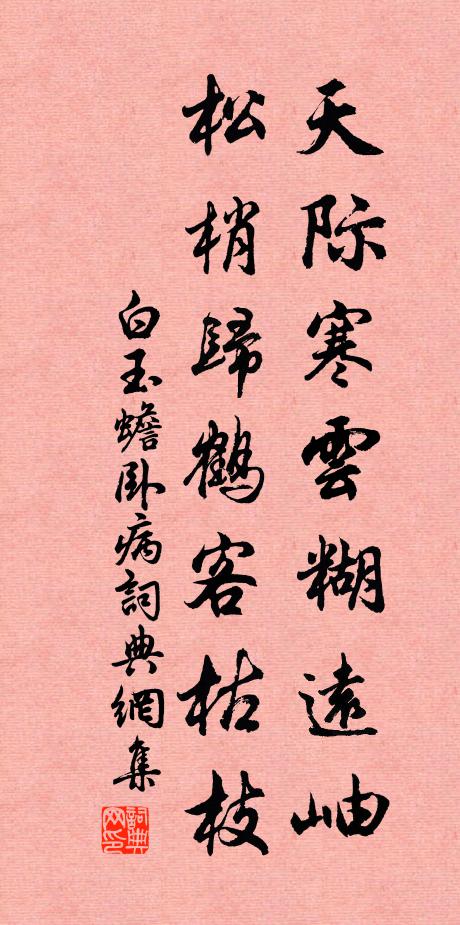 天际寒雲糊遠岫
松梢歸鶴客枯枝
白玉蟾卧病詞典網集
詞典网印